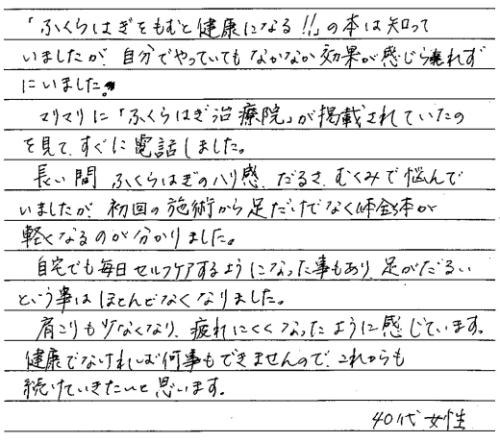 「ふくらはぎをもむと健康になる!!」の本は知って
いましたが、自分でやっていてもなかなか効果が感じられず
にいました。
マリマリに「ふくらはぎ治療院」が掲載されていたの
を見て、すぐに電話しました。
長い間、ふくらはぎのハリ感、だるさ、むくみで悩んで
いましたが、初回の施術から足だけでなく体全体が
軽くなるのが分かりました。
自宅でも毎日セルフケアするようになった事もあり、足がだるい
という事はほとんどなくなりました。
肩こりも少なくなり、疲れにくくなったように感じています。
健康でなければ何事もできませんので、これからも
続けていきたいと思います。
40代女性